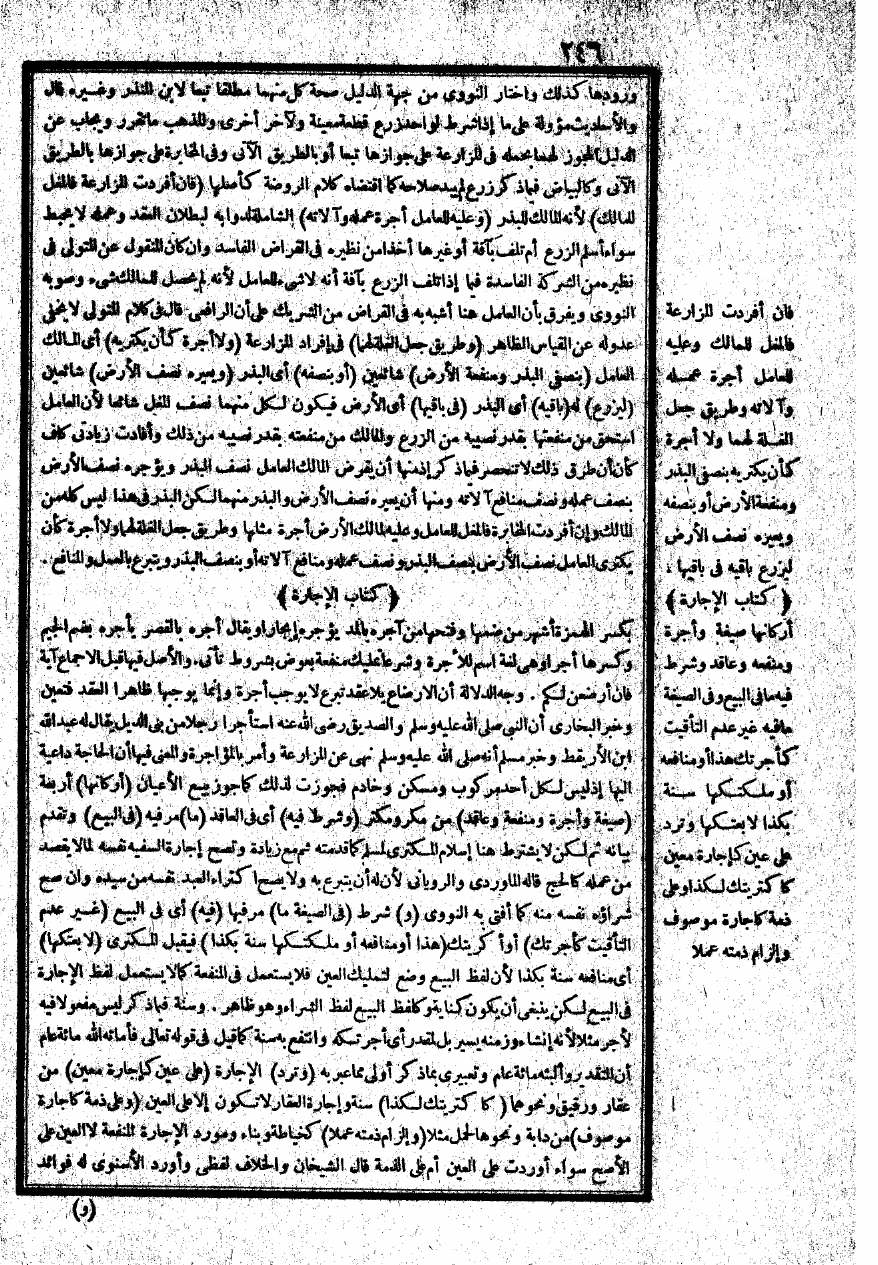 ٢٤٦
ورودها كذلك واختار النووى من جهة الدليل صحة كل منهما مطلقا تبعا لابن المنذر وغيره قال
والأحاديث مؤولة على ما إذا شرط لواحد زرع قطعة معينة ولآخر أخرى والمذهب ما تقرر ويجاب عن
الدليل المجوز لهما بحمله فى المزارعة على جوازها تبعا أو بالطريق الآتى وفى المخابرة على جوازها بالطريق
الآتى وكالبياض فيما ذكر زرع لم يبد صلاحه كما اقتضاه كلام الروضة كأصلها (فان أفردت المزارعة فالمغل
للمالك) لأنه المالك للبذر (وعليه للعامل أجرة عمله وآلاته) الشاملة لدوابه لبطلان العقد وعمله لا يحبط
سواء أسلم الزرع أم تلف بآفة أو غيرها أخذا من نظيره فى القراض الفاسد وان كان المنقول عن المتولى فى
نظيره من الشركة الفاسدة فيما إذا تلف الزرع بآفة أنه لا شىء للعامل لأنه لم يحصل للمالك شىء وصوبه
النووى ويفرق بأن العامل هنا أشبه به فى القراض من الشريك على أن الرافعى قال فى كلام المتولى لا يخفى
عدوله عن القياس الظاهر (وطريق جعل الغلة لهما) فى إفراد المزارعة (ولا أجرة كأن يكتريه) أى المالك
العامل (بنصفى البذر ومنفعة الأرض) شائعين (أو بنصفه) أى البذر (ويعيره نصف الأرض) شائعين
(ليزرع) له (باقيه) أى البذر (فى باقيها) أى الأرض فيكون لكل منهما نصف المغل شائعا لأن العامل
استحق من منفعتها بقدر نصيبه من الزرع والمالك من منفعته بقدر نصيبه من ذلك وأفادت زيادتى كاف
كأن أن طرق ذلك لا تنحصر فيما ذكر إذ منها أن يقرض المالك العامل نصف البذر ويؤجره نصف الأرض
بنصف عمله ونصف منافع آلاته ومنها أن يعيره نصف الأرض والبذر منهما لكن البذر فى هذا ليس كله من
المالك وإن أفردت المخابرة فالمغل للعامل وعليه لمالك الأرض أجرة مثلها وطريق جعل الغلة لهما ولا أجرة كأن
يكترى العامل نصف الأرض بنصف البذر ونصف عمله ومنافع آلاته أو بنصف البذر ويتبرع بالعمل والمنافع .
﴿ كتاب الإجارة ﴾
بكسر الهمزة أشهر من ضمها وفتحها من آجره بالمد يؤجره إيجارا ويقال أجره بالقصر يأجره بضم الجيم
وكسرها أجرا وهى لغة اسم للأجرة وشرعا تمليك منفعة بعوض بشروط تأتى . والأصل فيها قبل الاجماع آية
فان أرضعن لكم . وجه الدلالة أن الارضاع بلا عقد تبرع لا يوجب أجرة وإنما يوجبها ظاهرا العقد فتعين
وخبر البخارى أن النبى صلى الله عليه وسلم والصديق رضى الله عنه استأجرا رجلا من بنى الديل يقال له عبد الله
ابن الأريقط وخبر مسلم أنه صلى الله عليه وسلم نهى عن المزارعة وأمر بالمؤاجرة والمعنى فيها أن الحاجة داعية
اليها إذ ليس لكل أحد مركوب ومسكن وخادم فجوزت لذلك كما جوز بيع الأعيان (أركانها) أربعة
(صيغة وأجرة ومنفعة وعاقد) من مكر ومكتر (وشرط فيه) أى فى العاقد (ما) مر فيه (فى البيع) وتقدم
بيانه ثم لكن لا يشترط هنا إسلام المكترى لمسلم كما قدمته ثم مع زيادة وتصح إجارة السفيه نفسه لما لا يقصد
من عمله كالحج قاله الماوردى والرويانى لأن له أن يتبرع به ولا يصح اكتراء العبد نفسه من سيده وان صح
شراؤه نفسه منه كما أفتى به النووى (و) شرط (فى الصيغة ما) مر فيها (فيه) أى فى البيع (غير عدم
التأقيت كأجرتك) أو أكريتك (هذا أو منافعه أو ملكتكها سنة بكذا) فيقبل المكترى (لا بعتكها)
أى منافعه سنة بكذا لأن لفظ البيع وضع لتمليك العين فلا يستعمل فى المنفعة كما لا يستعمل لفظ الإجارة
فى البيع لكن ينبغى أن يكون كناية وكلفظ البيع لفظ الشراء وهو ظاهر . وسنة فيما ذكر ليس مفعولا فيه
لأجر مثلا لأنه إنشاء وزمنه يسير بل لمقدر أى أجرتكه وانتفع به سنة كما قيل فى قوله تعالى فأماته الله مائة عام
أن التقدير وألبثه مائة عام وتعبيرى بما ذكر أولى مما عبر به (وترد) الإجارة (على عين كإجارة معين) من
عقار ورقيق ونحوهما (كاكتريتك لكذا) سنة وإجارة العقار لا تكون إلا على العين (وعلى ذمة كاجارة
موصوف) من دابة ونحوها لحمل مثلا (وإلزام ذمته عملا) كخياطة وبناء ومورد الإجارة المنفعة لا العين على
الأصح سواء أوردت على العين أم على الذمة قال الشيخان والخلاف لفظى وأورد الأسنوى له فوائد
(و)
فان أفردت المزارعة
فالمغل للمالك وعليه
للعامل أجرة عمله
وآلاته وطريق جعل
الغلة لهما ولا أجرة
كأن يكتريه بنصفى البذر
ومنفعة الأرض أو بنصفه
ويعيره نصف الأرض
ليزرع باقيه فى باقيها .
﴿ كتاب الإجارة ﴾
أركانها صيغة وأجرة
ومنفعة وعاقد وشرط
فيه ما فى البيع وفى الصيغة
ما فيه غير عدم التأقيت
كأجرتك هذا أو منافعه
أو ملكتكها سنة
بكذا لا بعتكها وترد
على عين كإجارة معين
كاكتريتك لكذا وعلى
ذمة كاجارة موصوف
وإلزام ذمته عملا